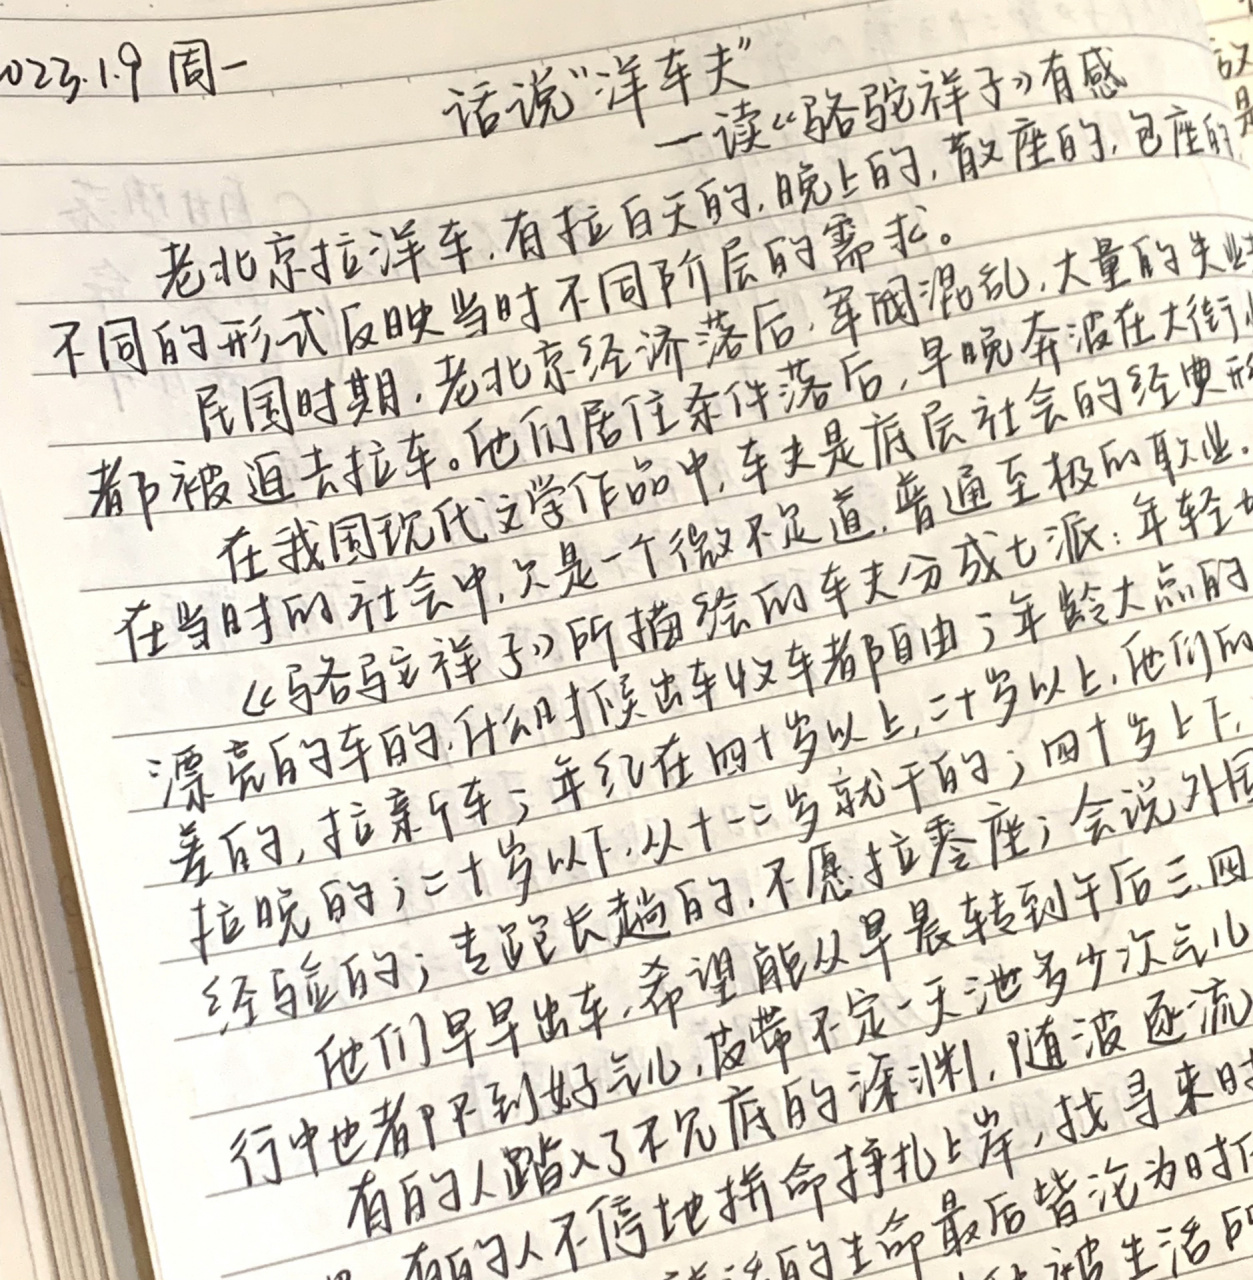 2023.1.9 周一
话说“洋车夫”
—读《骆驼祥子》有感
老北京拉洋车,有拉白天的,晚上的,散座的,包座的,
不同的形式反映当时不同阶层的需求。
民国时期,老北京经济落后,军阀混乱,大量的失业
都被迫去拉车。他们居住条件落后,早晚奔波在大街小
在我国现代文学作品中,车夫是底层社会的经典形
在当时的社会中,只是一个微不足道,普通至极的职业.
《骆驼祥子》所描绘的车夫分成七派:年轻力
漂亮的车的,什么时候出车收车都自由;年龄大点的
差的,拉亲个车;年纪在四十岁以上,二十岁以上,他们的
拉晚的;二十岁以下,从十一二岁就干的;四十岁上下,
经验的;专跑长趟的,不愿拉零座;会说外国
他们早早出车,希望能从早晨转到午后三四
行中也都早到好气儿,皮带不定一天泄多少次气儿
有的人踏入了不见底的深渊,随波逐流
有的人不停地拼命挣扎上岸,找寻来时
的生命最后皆沦为时代
被生活所